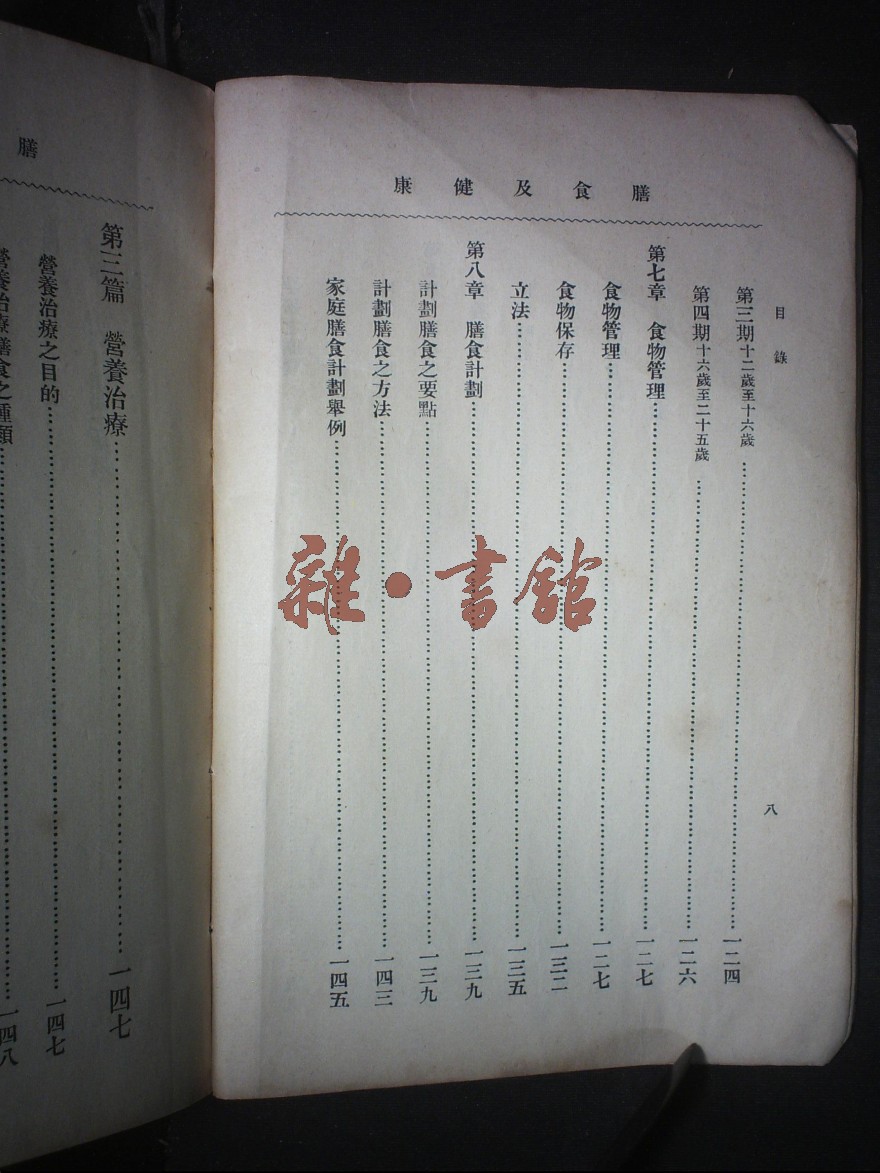 膳食及健康
目錄
第三期十二歲至十六歲……一二四
第四期十六歲至二十五歲……一二六
第七章　食物管理……一二七
食物管理……一二七
食物保存……一三二
立法……一三五
第八章　膳食計劃……一三九
計劃膳食之要點……一三九
計劃膳食之方法……一四三
家庭膳食計劃舉例……一四五
八
雜·書館
膳
第三篇　營養治療……一四七
營養治療之目的……一四七
營養治療膳食之種類……一四八